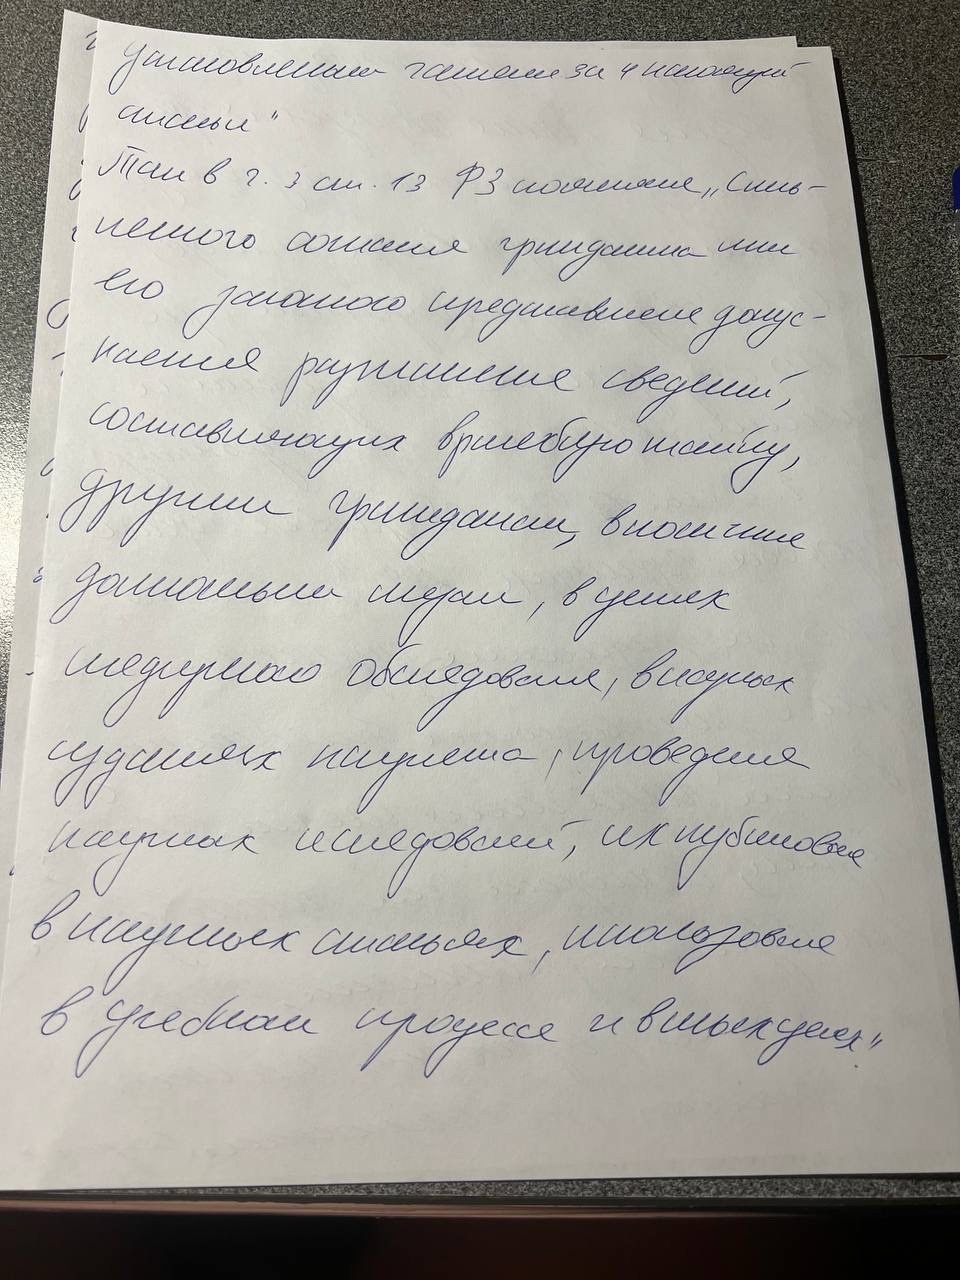 установленных частями 3 и 4 настоящей
статьи"
Так в ч. 3 ст. 13 ФЗ "С пись-
менного согласия гражданина или
его законного представителя допус-
кается разглашение сведений,
составляющих врачебную тайну,
другим гражданам, в том числе
должностным лицам, в целях
медицинского обследования, в научных
изданиях пациента, проведения
научных исследований, их публикования
в научных статьях, использования
в учебном процессе и в иных целях"